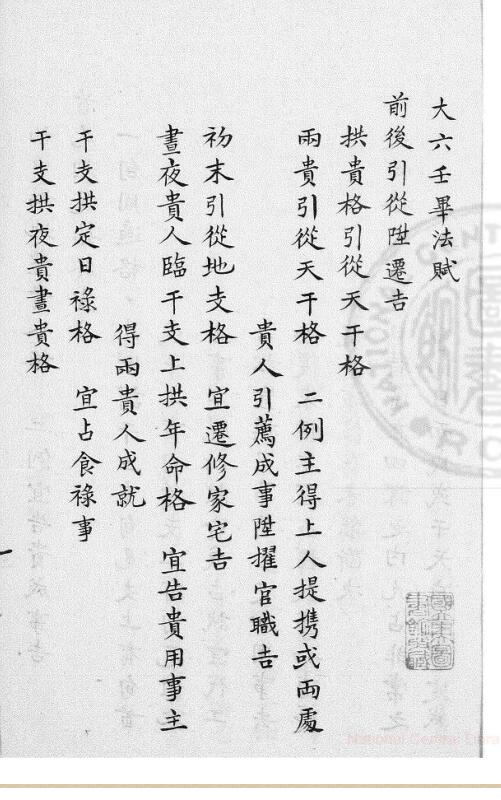 大六壬畢法賦
前後引從陞遷吉
拱貴格引從天干格
兩貴引從天干格 二例主得上人提携或兩處
貴人引薦成事陞擢官職吉
初末引從地支格 宜遷修家宅吉
晝夜貴人臨干支上拱年命格 宜告貴用事主
得兩貴人成就
干支拱定日祿格 宜占食祿事
干支拱夜貴晝貴格
National Central Libra